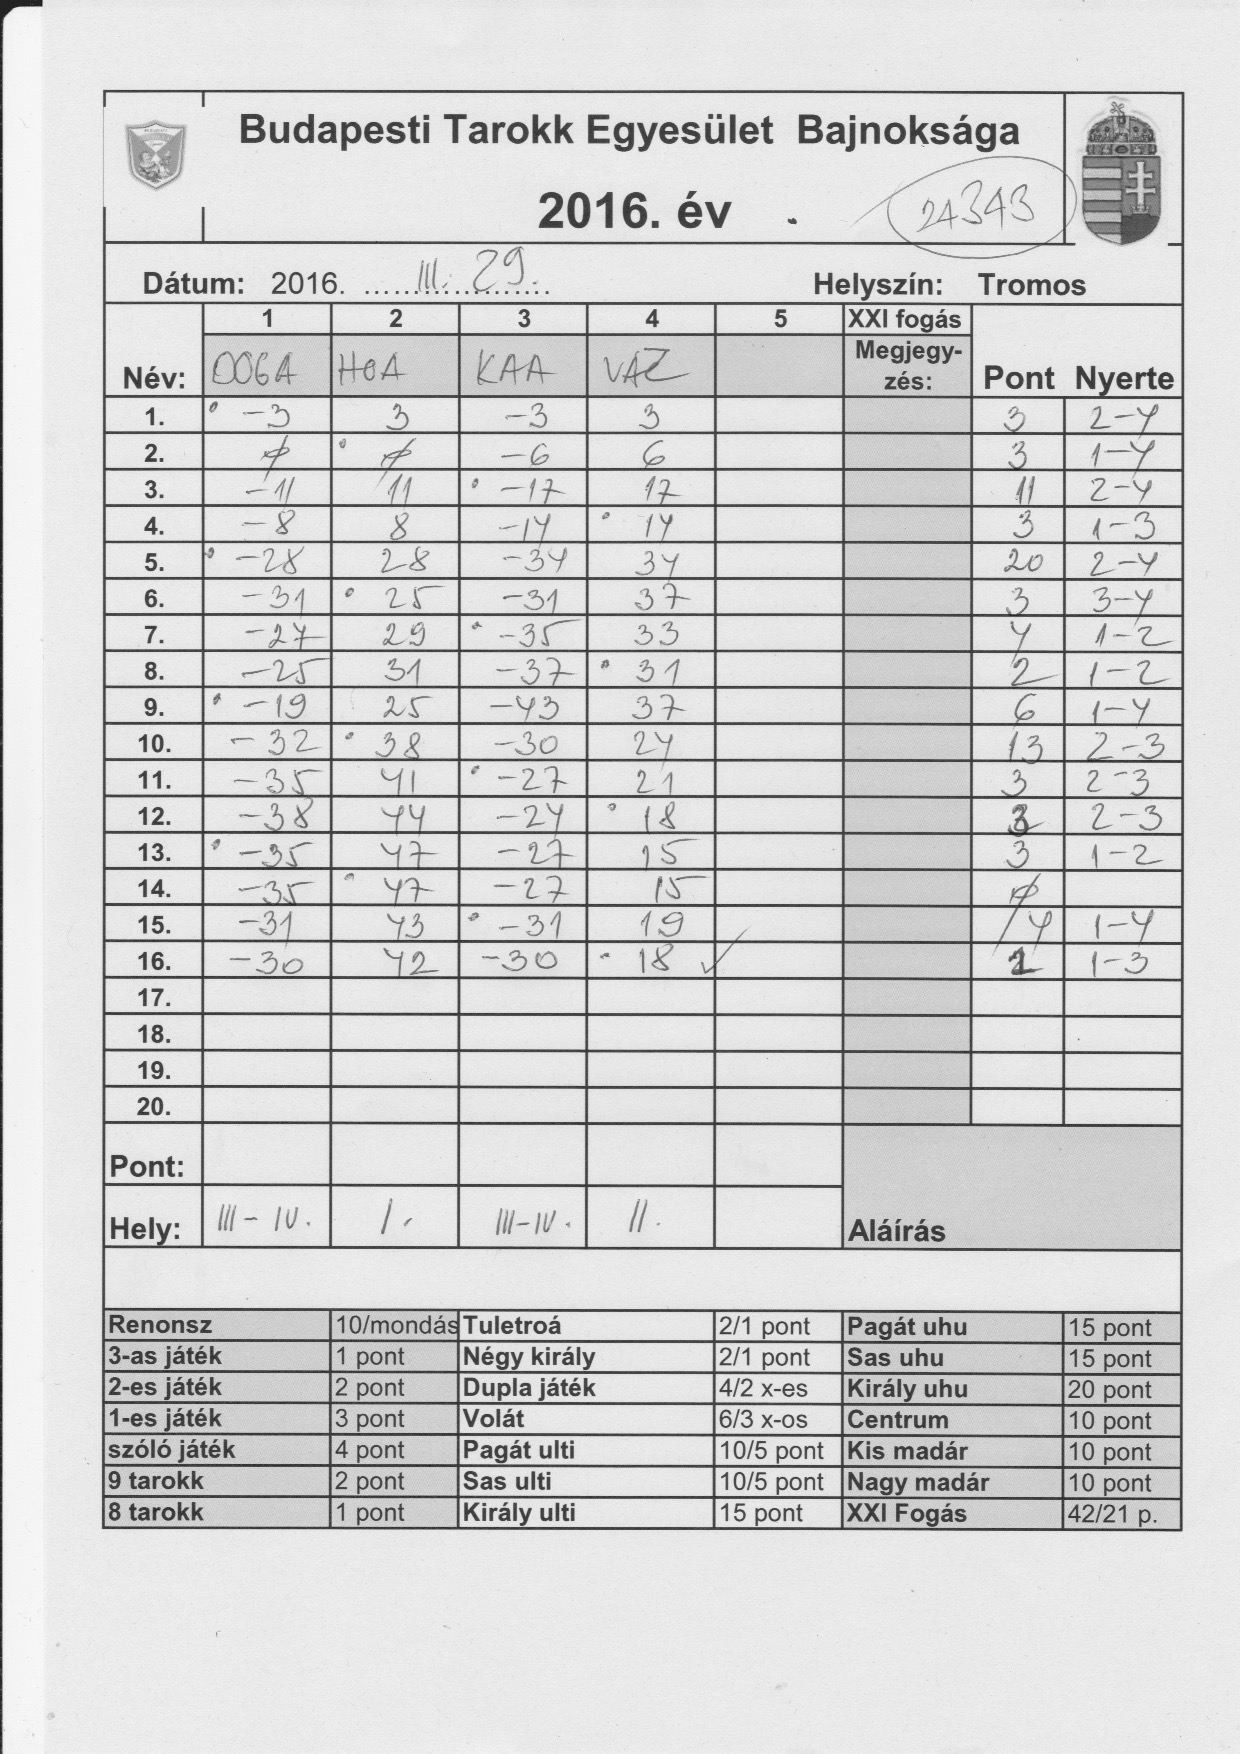 Budapesti Tarokk Egyesület Bajnoksága
2016. év
24343
Dátum: 2016. III. 29. Helyszín: Tromos
1 2 3 4 5 XXI fogás
Név: DOGA HOA KAA VAZ Megjegy-zés: Pont Nyerte
1. -3 3 -3 3 3 2-4
2. 0 0 -6 6 3 1-4
3. -11 11 -17 17 11 2-4
4. -8 8 -14 14 3 1-3
5. -28 28 -34 34 20 2-4
6. -31 25 -31 37 3 3-4
7. -27 29 -35 33 4 1-2
8. -25 31 -37 31 2 1-2
9. -19 25 -43 37 6 1-4
10. -32 38 -30 24 13 2-3
11. -35 41 -27 21 3 2-3
12. -38 44 -24 18 3 2-3
13. -35 47 -27 15 3 1-2
14. -35 47 -27 15 0
15. -31 43 -31 19 4 1-4
16. -30 42 -30 18 1 1-3
17.
18.
19.
20.
Pont:
Hely: III-IV. I. III-IV. II. Aláírás
Renonsz 10/mondás Tuletroá 2/1 pont Pagát uhu 15 pont
3-as játék 1 pont Négy király 2/1 pont Sas uhu 15 pont
2-es játék 2 pont Dupla játék 4/2 x-es Király uhu 20 pont
1-es játék 3 pont Volát 6/3 x-os Centrum 10 pont
szóló játék 4 pont Pagát ulti 10/5 pont Kis madár 10 pont
9 tarokk 2 pont Sas ulti 10/5 pont Nagy madár 10 pont
8 tarokk 1 pont Király ulti 15 pont XXI Fogás 42/21 p.